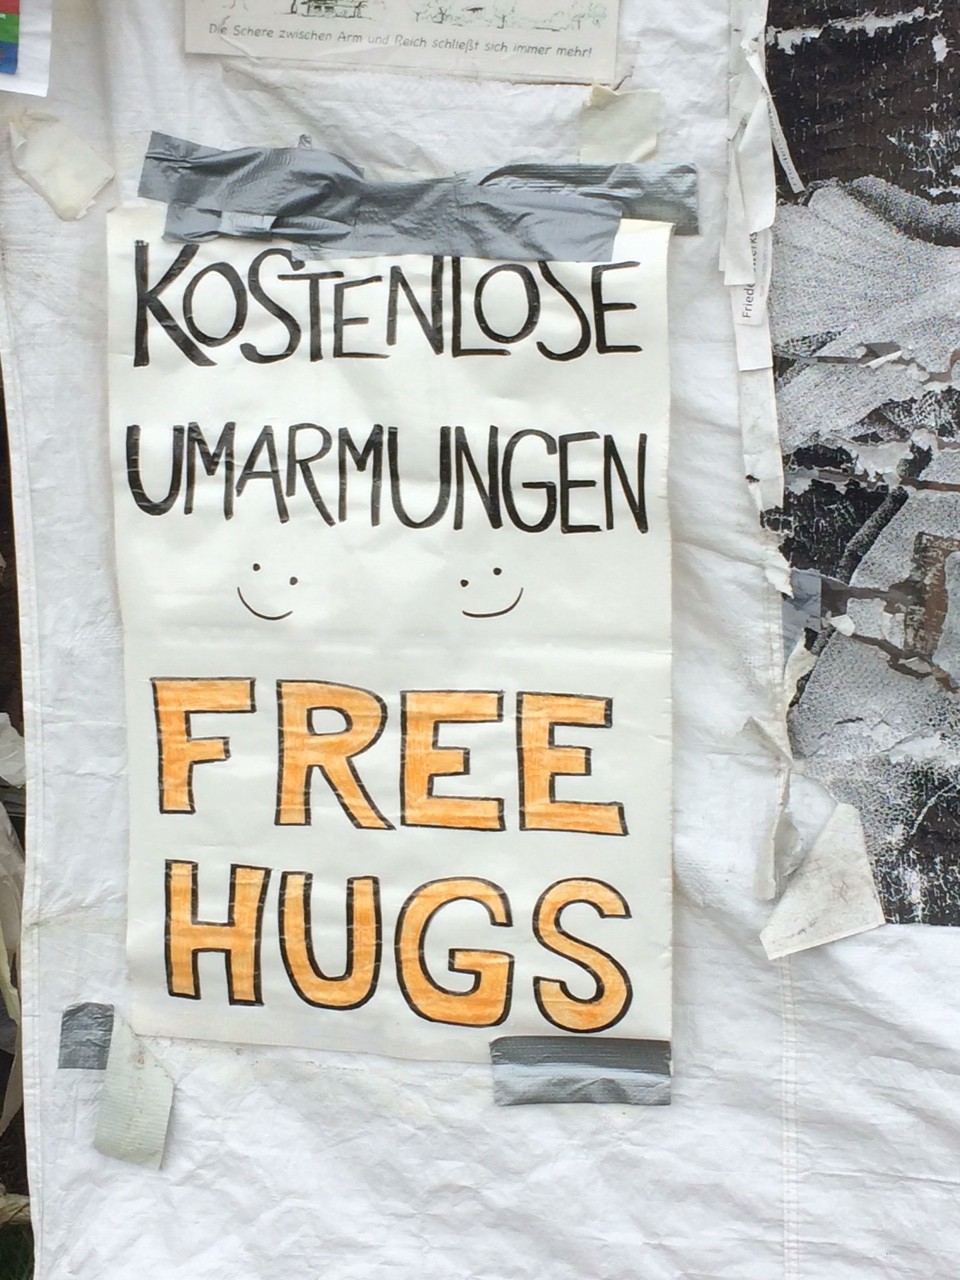 Die Schere zwischen Arm und Reich schließt sich immer mehr!
KOSTENLOSE
UMARMUNGEN
FREE
HUGS